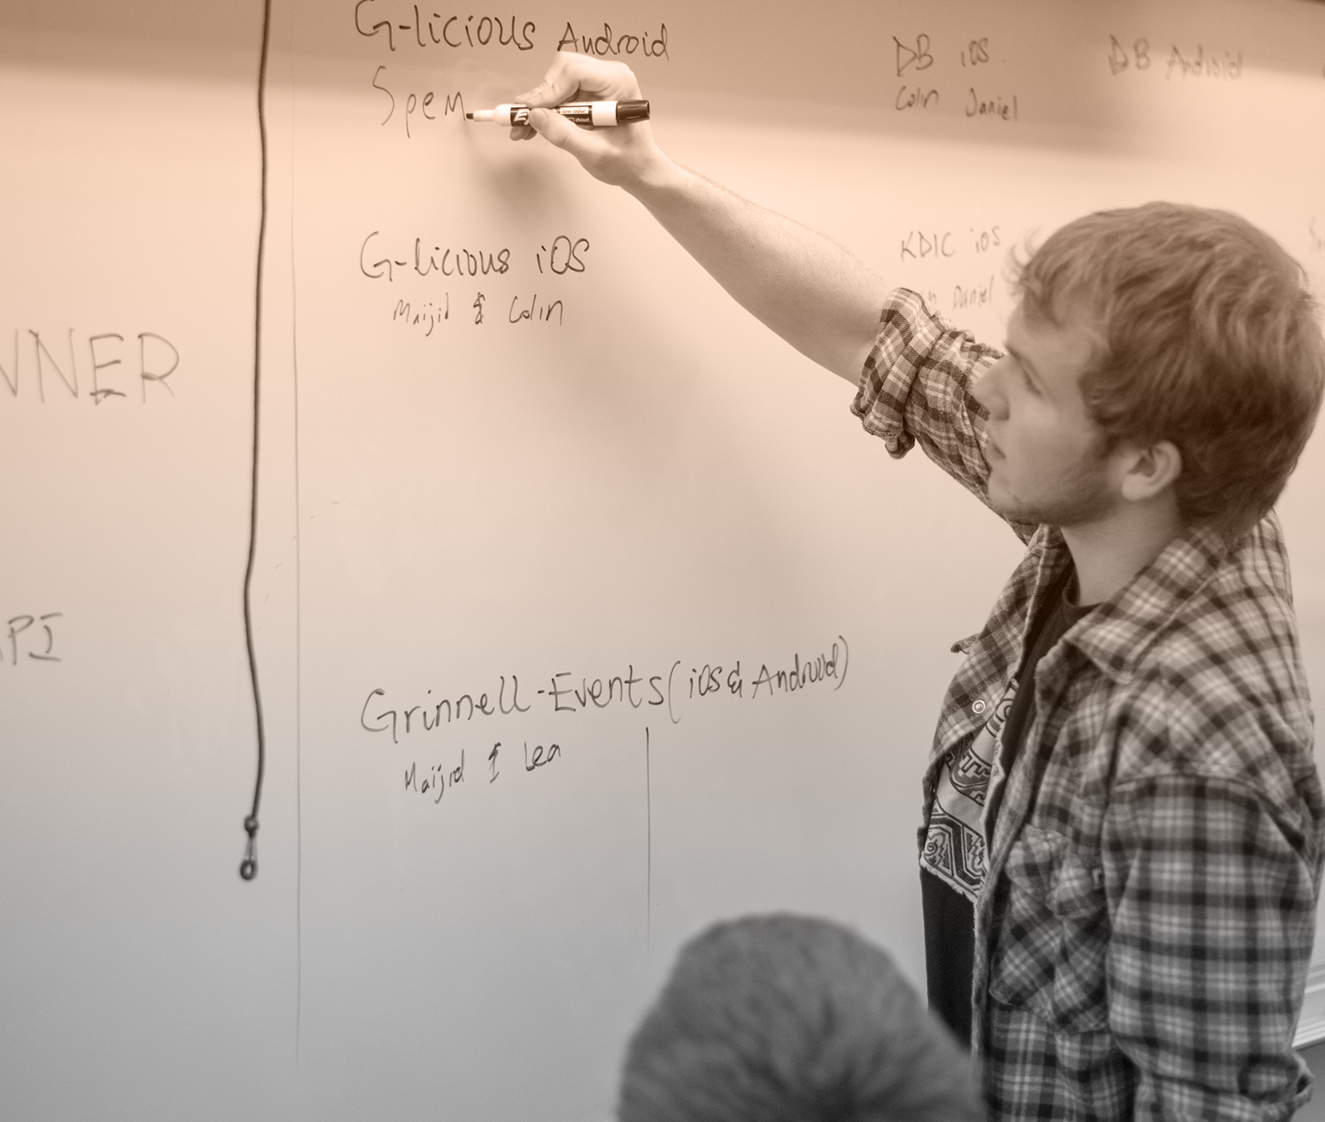 G-licious Android
Spem
G-licious iOS
Maijid & Colin
Grinnell-Events (iOS & Android)
Maijid & Lea
DB iOS
Colin Daniel
DB Android
KDIC iOS
Daniel
NNER
API